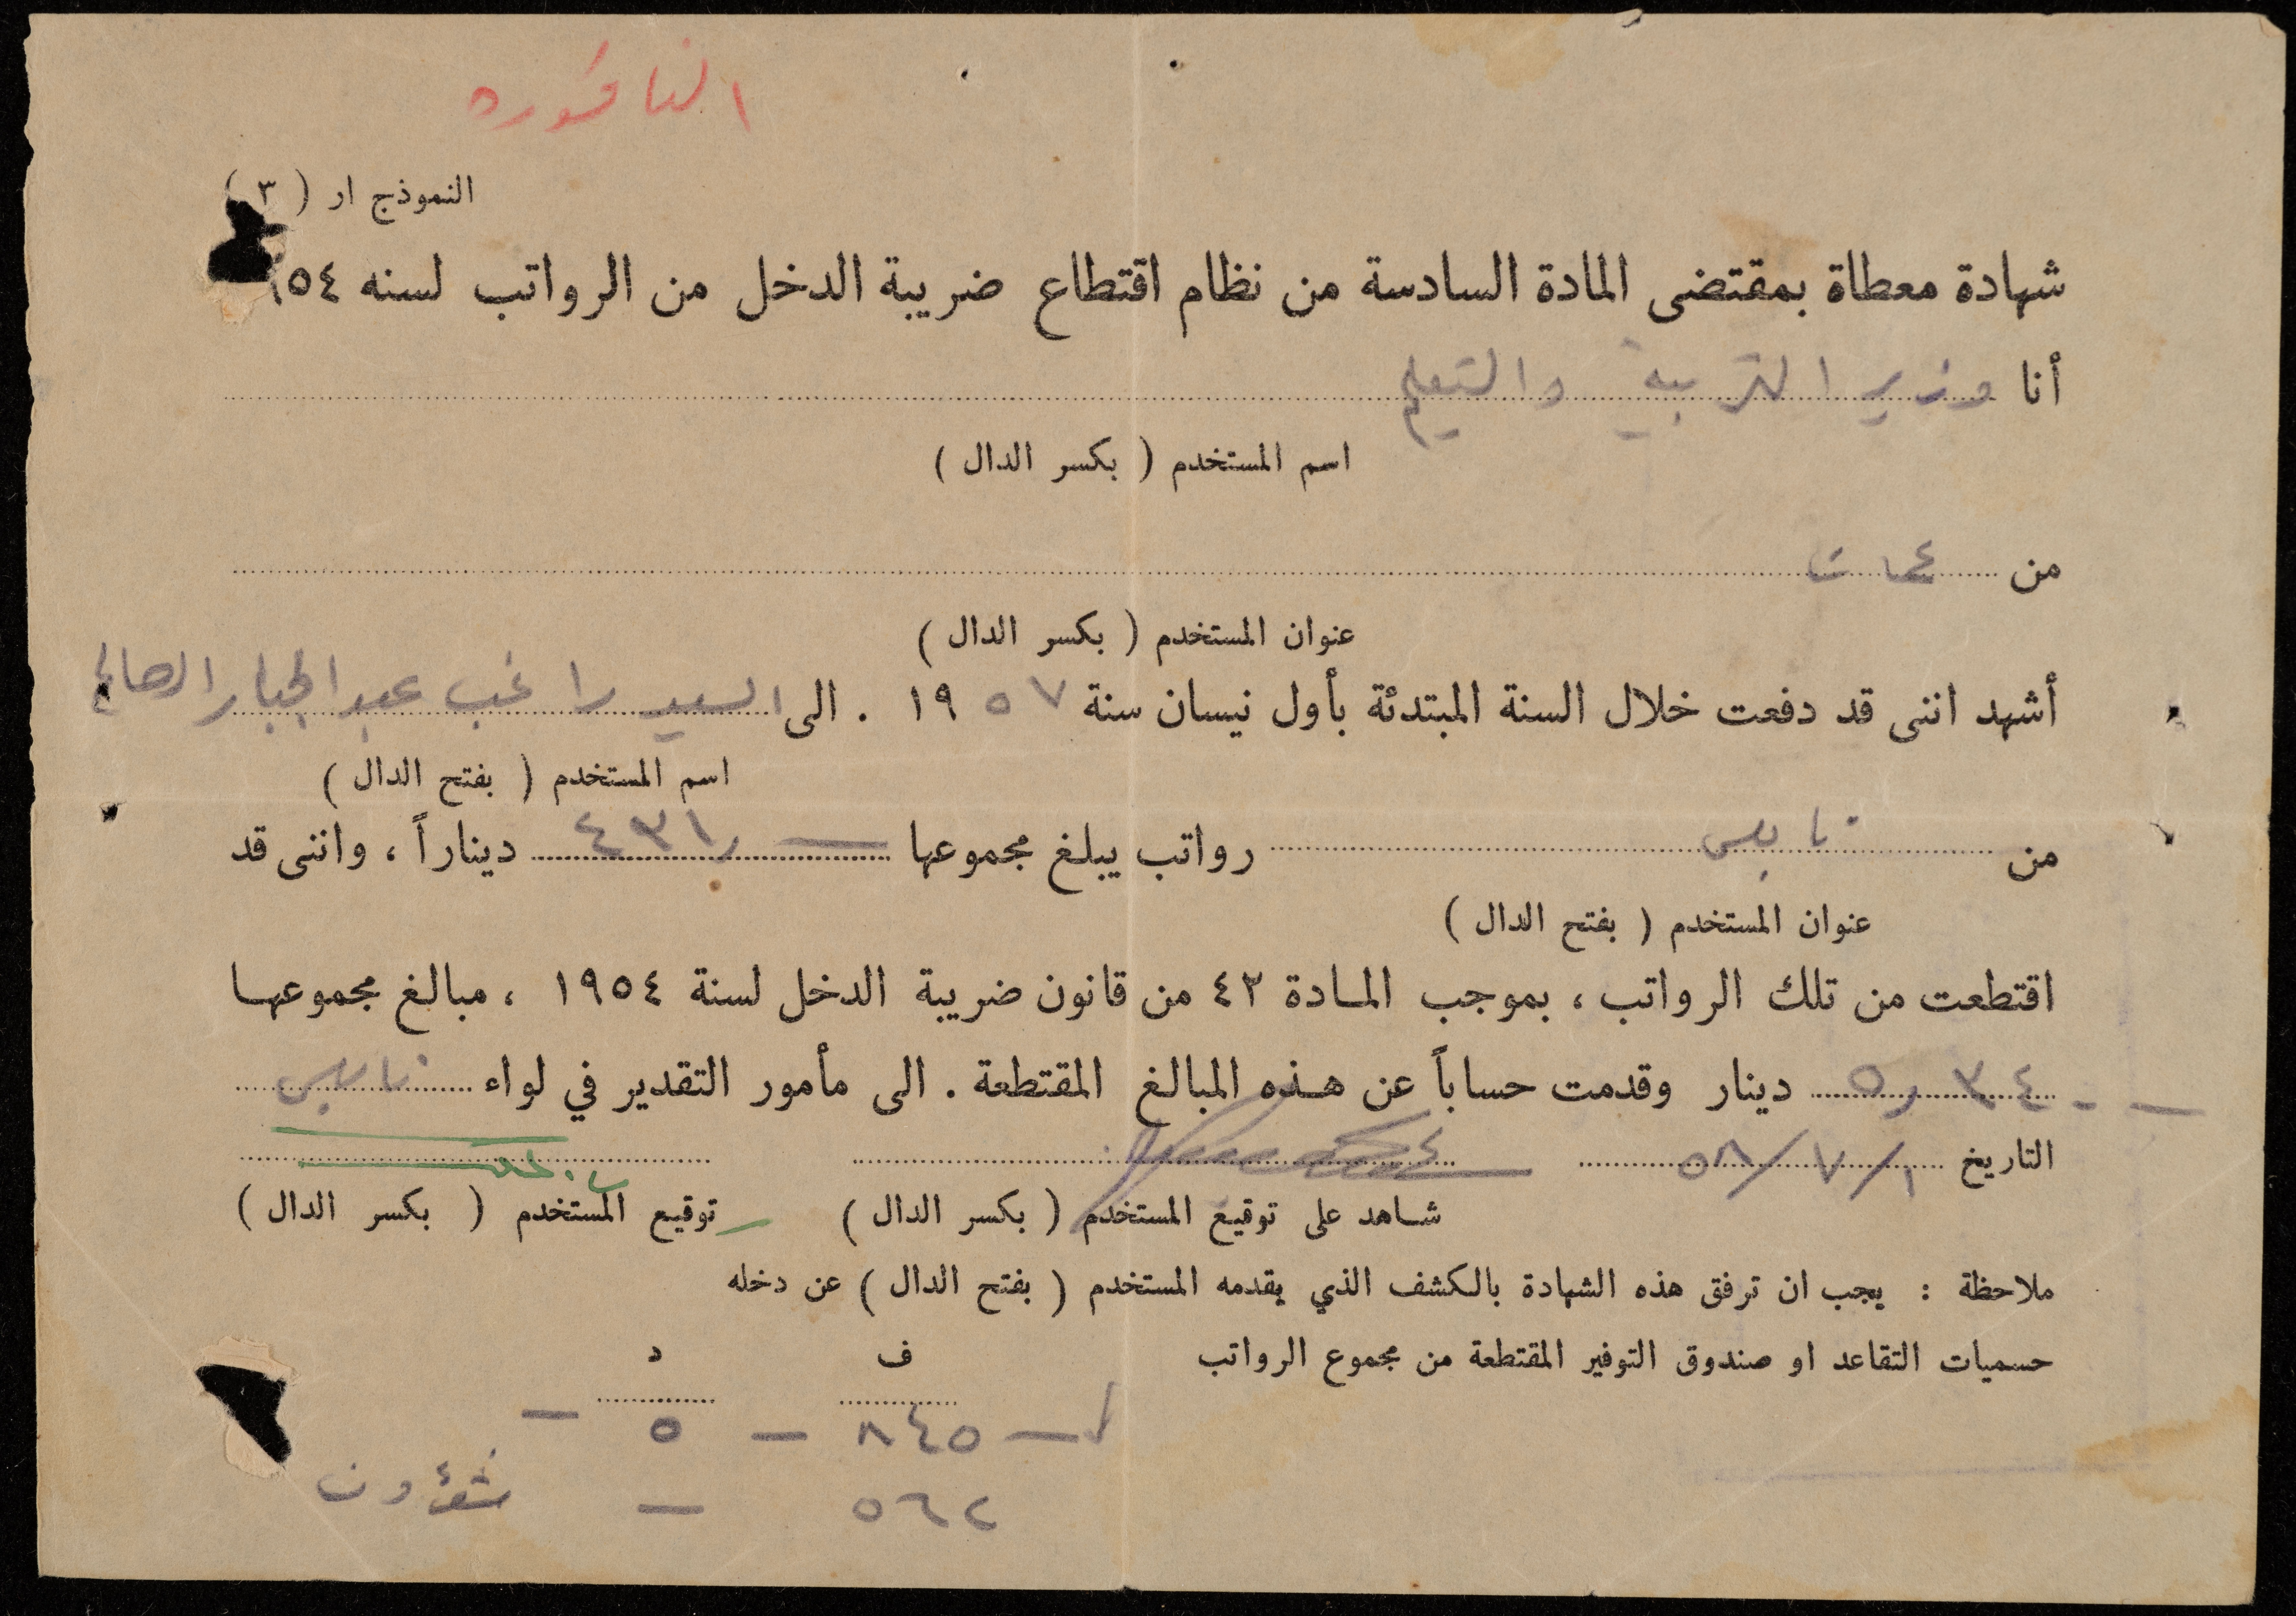 الناقوره
النموذج ار ( ٣ )
شهادة معطاة بمقتضى المادة السادسة من نظام اقتطاع ضريبة الدخل من الرواتب لسنه ١٩٥٤
أنا وزير التربية والتعليم
اسم المستخدم ( بكسر الدال )
من عمان
عنوان المستخدم ( بكسر الدال )
أشهد اننى قد دفعت خلال السنة المبتدئة بأول نيسان سنة ١٩٥٧ . الى السيد راغب عبد الجبار الصالح
اسم المستخدم ( بفتح الدال )
من نابلس رواتب يبلغ مجموعها ٤٣١ر— ديناراً ، واننى قد
عنوان المستخدم ( بفتح الدال )
اقتطعت من تلك الرواتب ، بموجب المادة ٤٢ من قانون ضريبة الدخل لسنة ١٩٥٤ ، مبالغ مجموعها
دينار وقدمت حساباً عن هذه المبالغ المقتطعة . الى مأمور التقدير في لواء نابلس
التاريخ ١/٧/٥٨
شاهد على توقيع المستخدم ( بكسر الدال ) توقيع المستخدم ( بكسر الدال )
ملاحظة : يجب ان ترفق هذه الشهادة بالكشف الذي يقدمه المستخدم ( بفتح الدال ) عن دخله
حسميات التقاعد او صندوق التوفير المقتطعة من مجموع الرواتب ف د
— ٨٤٥ — ٥ —
٥٦٢ — شؤون